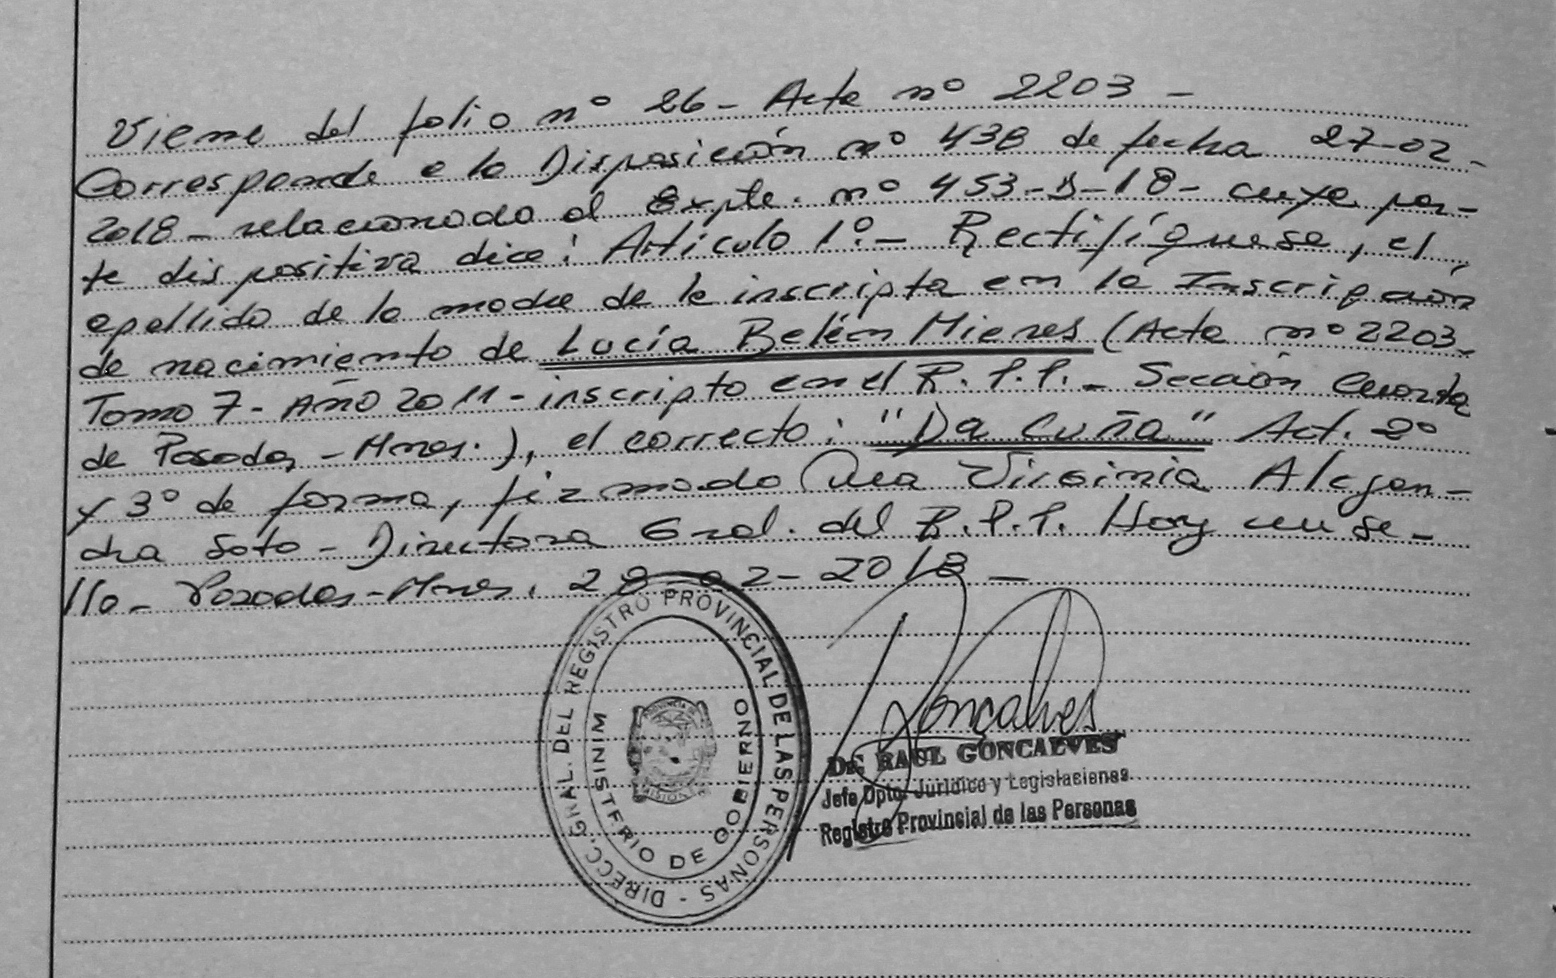 Viene del folio nº 26 - Acta nº 2203 -
Corresponde a la Disposición nº 438 de fecha 27-02-
2018 - relacionado al Expte. nº 453-D-18- cuya par-
te dispositiva dice: Artículo 1º.- Rectifíquese, el
apellido de la madre de la inscripta en la Inscripción
de nacimiento de Lucía Belén Mieres (Acta nº 2203-
Tomo 7 - Año 2011 - inscripto en el R.P.P. - Sección Cuarta
de Posadas - Mnes.), el correcto: "Da Cuña" Art. 2º
y 3º de forma, firmado Dra Virginia Alejan-
dra Soto - Directora Gral. del R.P.P. Hay un se-
llo - Posadas - Mnes. 28-02-2018 -
DIRECC. GRAL. DEL REGISTRO PROVINCIAL DE LAS PERSONAS -
MINISTERIO DE GOBIERNO
Goncalves
Dr. RAUL GONCALVES
Jefe Dpto. Jurídico y Legislaciones
Registro Provincial de las Personas